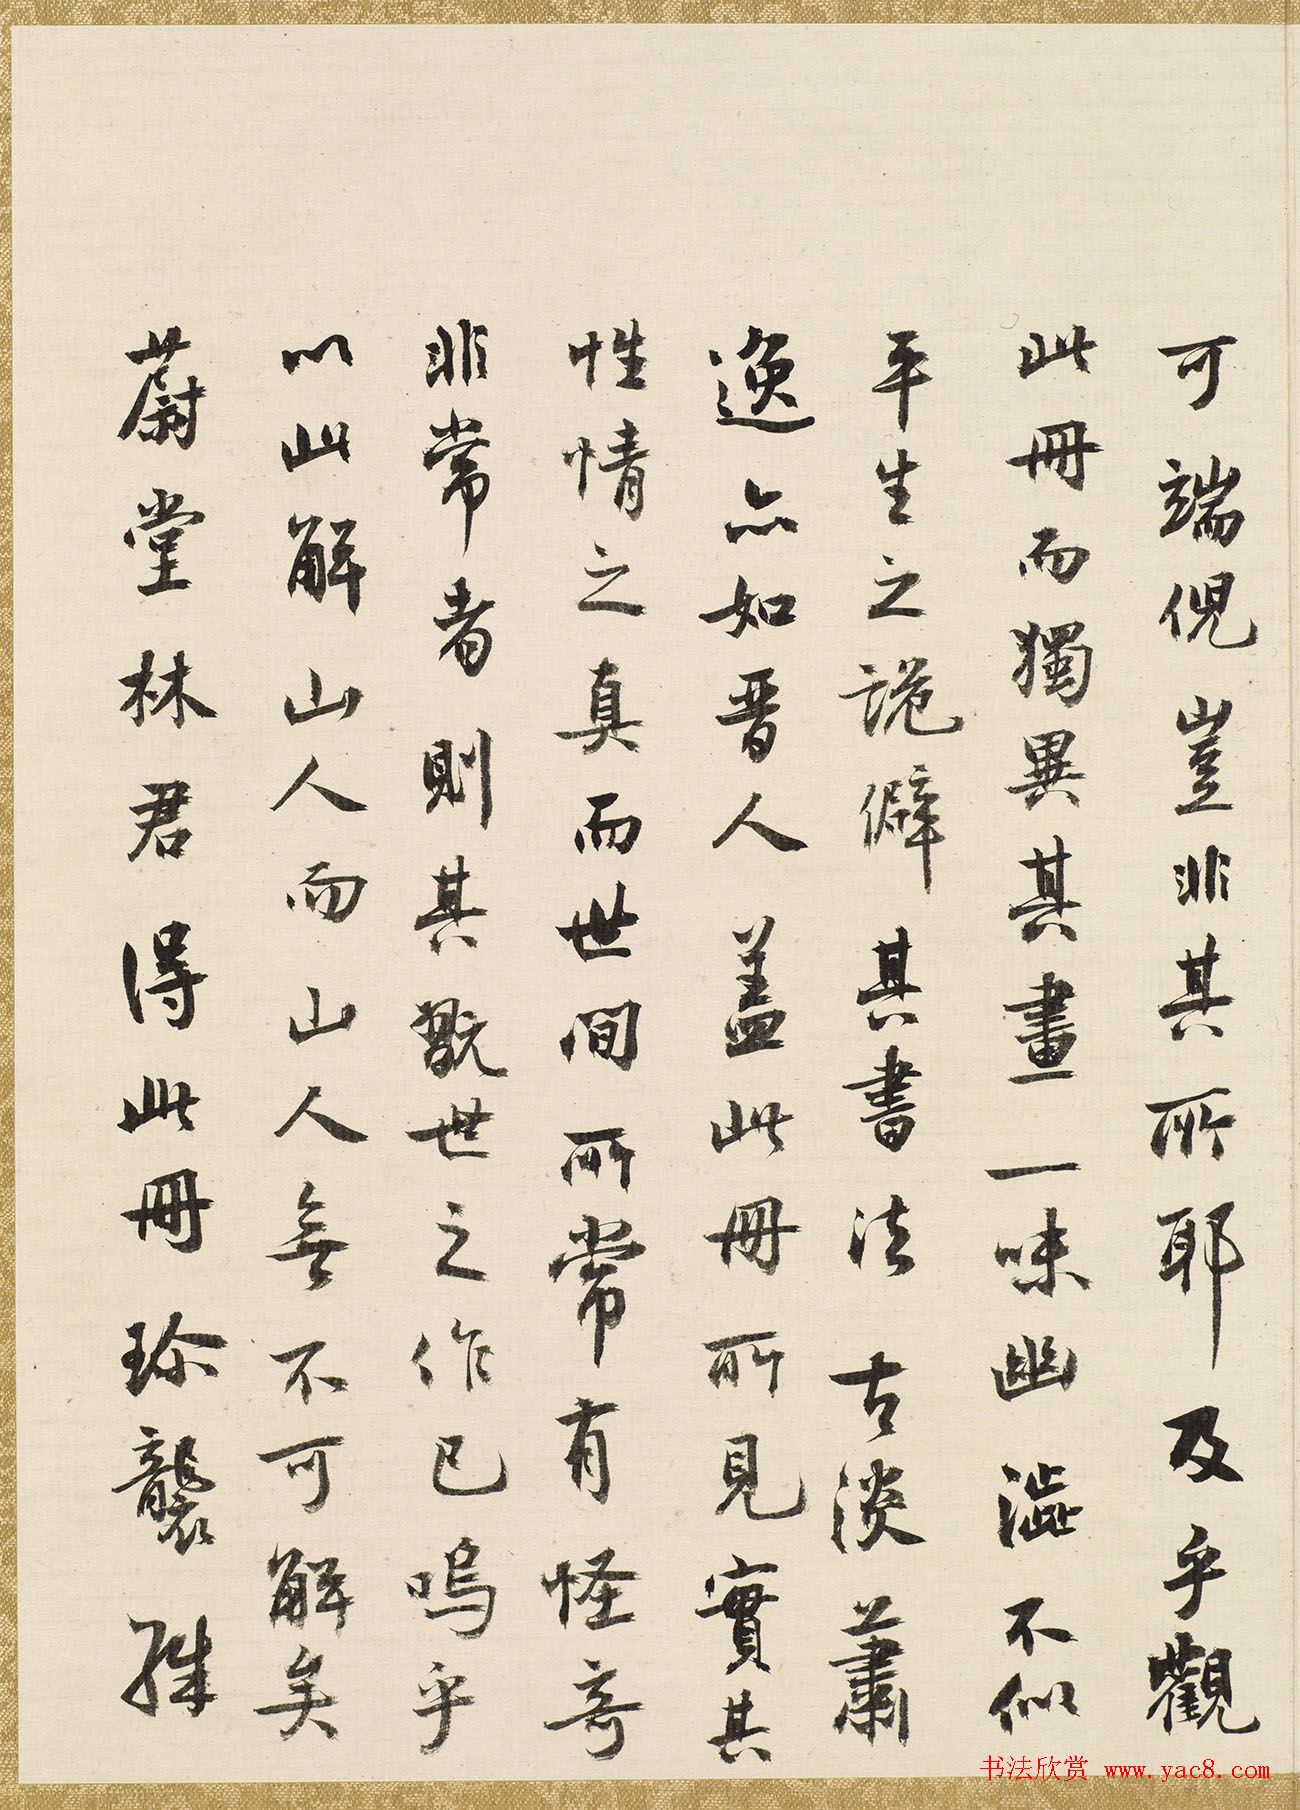 可端倪豈非其所耶及乎觀
此冊而獨異其畫一味幽澁不似
平生之詭僻其書法古淡蕭
逸亦如晋人蓋此冊所見實其
性情之真而世間所常有怪奇
非常者則其翫世之作已嗚乎
以此解山人而山人無不可解矣
蔚堂林君得此冊珍襲殊
书法欣赏 www.yac8.com